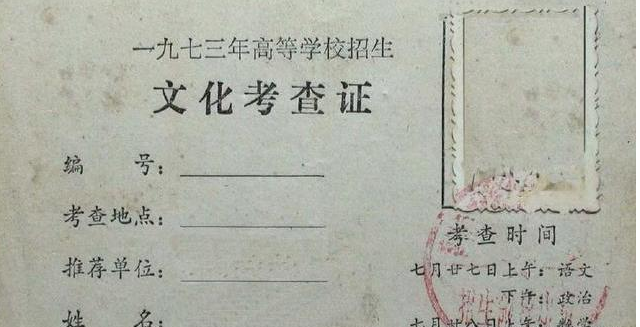 一九七三年高等学校招生
文化考查证
编　　号：
考查地点：
推荐单位：
姓　　名：
考查时间
七月廿七日上午：语文
下午：政治
七月廿八日上午：数学